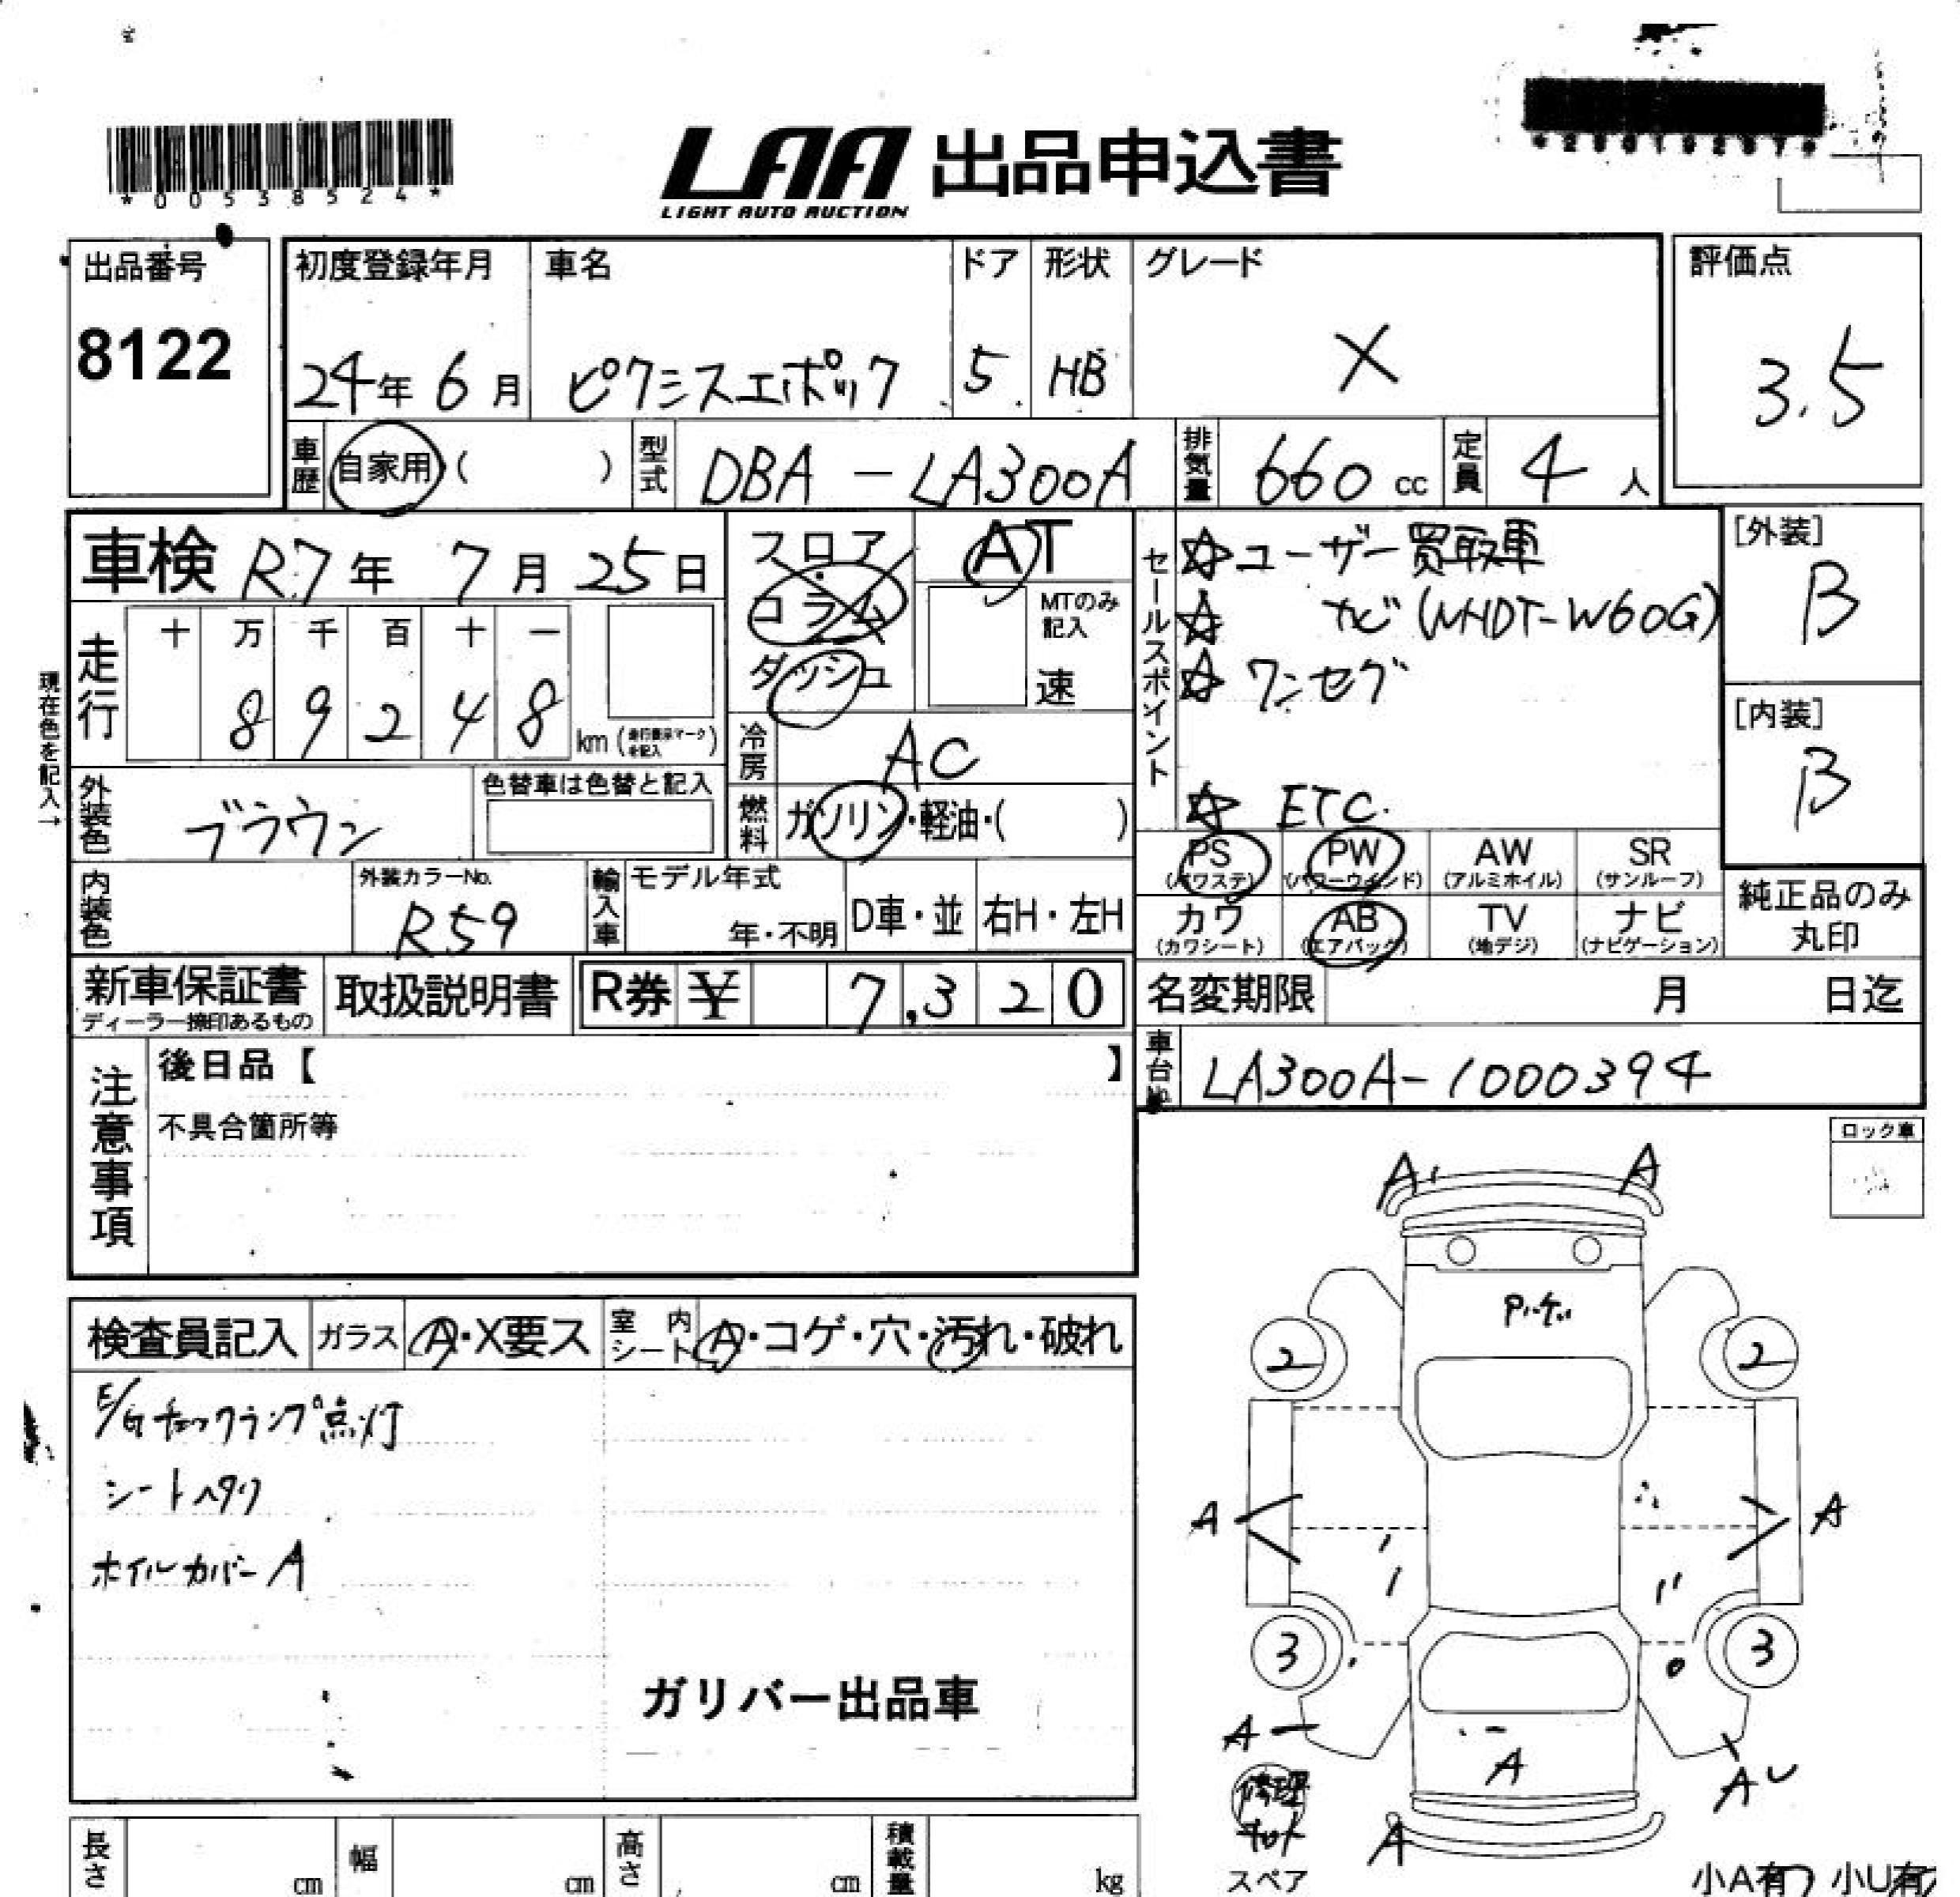 *00538524*
LAA 出品申込書
LIGHT AUTO AUCTION
出品番号
8122
初度登録年月
24年 6月
車名
ピクシスエポック
ドア
5
形状
HB
グレード
X
評価点
3.5
車歴 自家用 ( )
型式 DBA-LA300A
排気量 660 cc
定員 4 人
車検 R.7年 7月 25日
走行
十 万 千 百 十 一
8 9 2 4 8 km
現在色を記入→
外装色 ブラウン
色替車は色替と記入
内装色
外装カラーNo.
R59
輸入車
モデル年式
年・不明
D車・並
右H・左H
フロア
コラム
ダッシュ
AT
MTのみ記入
速
冷房 AC
燃料 ガソリン・軽油・( )
セールスポイント
☆ユーザー買取車
☆ ナビ(NHDT-W60G)
☆ワンセグ
☆ ETC.
[外装]
B
[内装]
B
PS (パワステ)
PW (パワーウインド)
AW (アルミホイル)
SR (サンルーフ)
カワ (カワシート)
AB (エアバック)
TV (地デジ)
ナビ (ナビゲーション)
純正品のみ
丸印
新車保証書
ディーラー捺印あるもの
取扱説明書
R券 ¥ 7,320
名変期限 月 日迄
車台No. LA300A-1000394
注意事項
後日品【 】
不具合箇所等
ロック車
検査員記入
ガラス A・X要ス
室内シート A・コゲ・穴・汚れ・破れ
E/Gチェックランプ点灯
シートヘタリ
ホイルカバーA
ガリバー出品車
A A
2 2
A A
3 3
A
A
A
A
修理
キット
スペア
小A有 小U有
長さ cm
幅 cm
高さ cm
積載量 kg